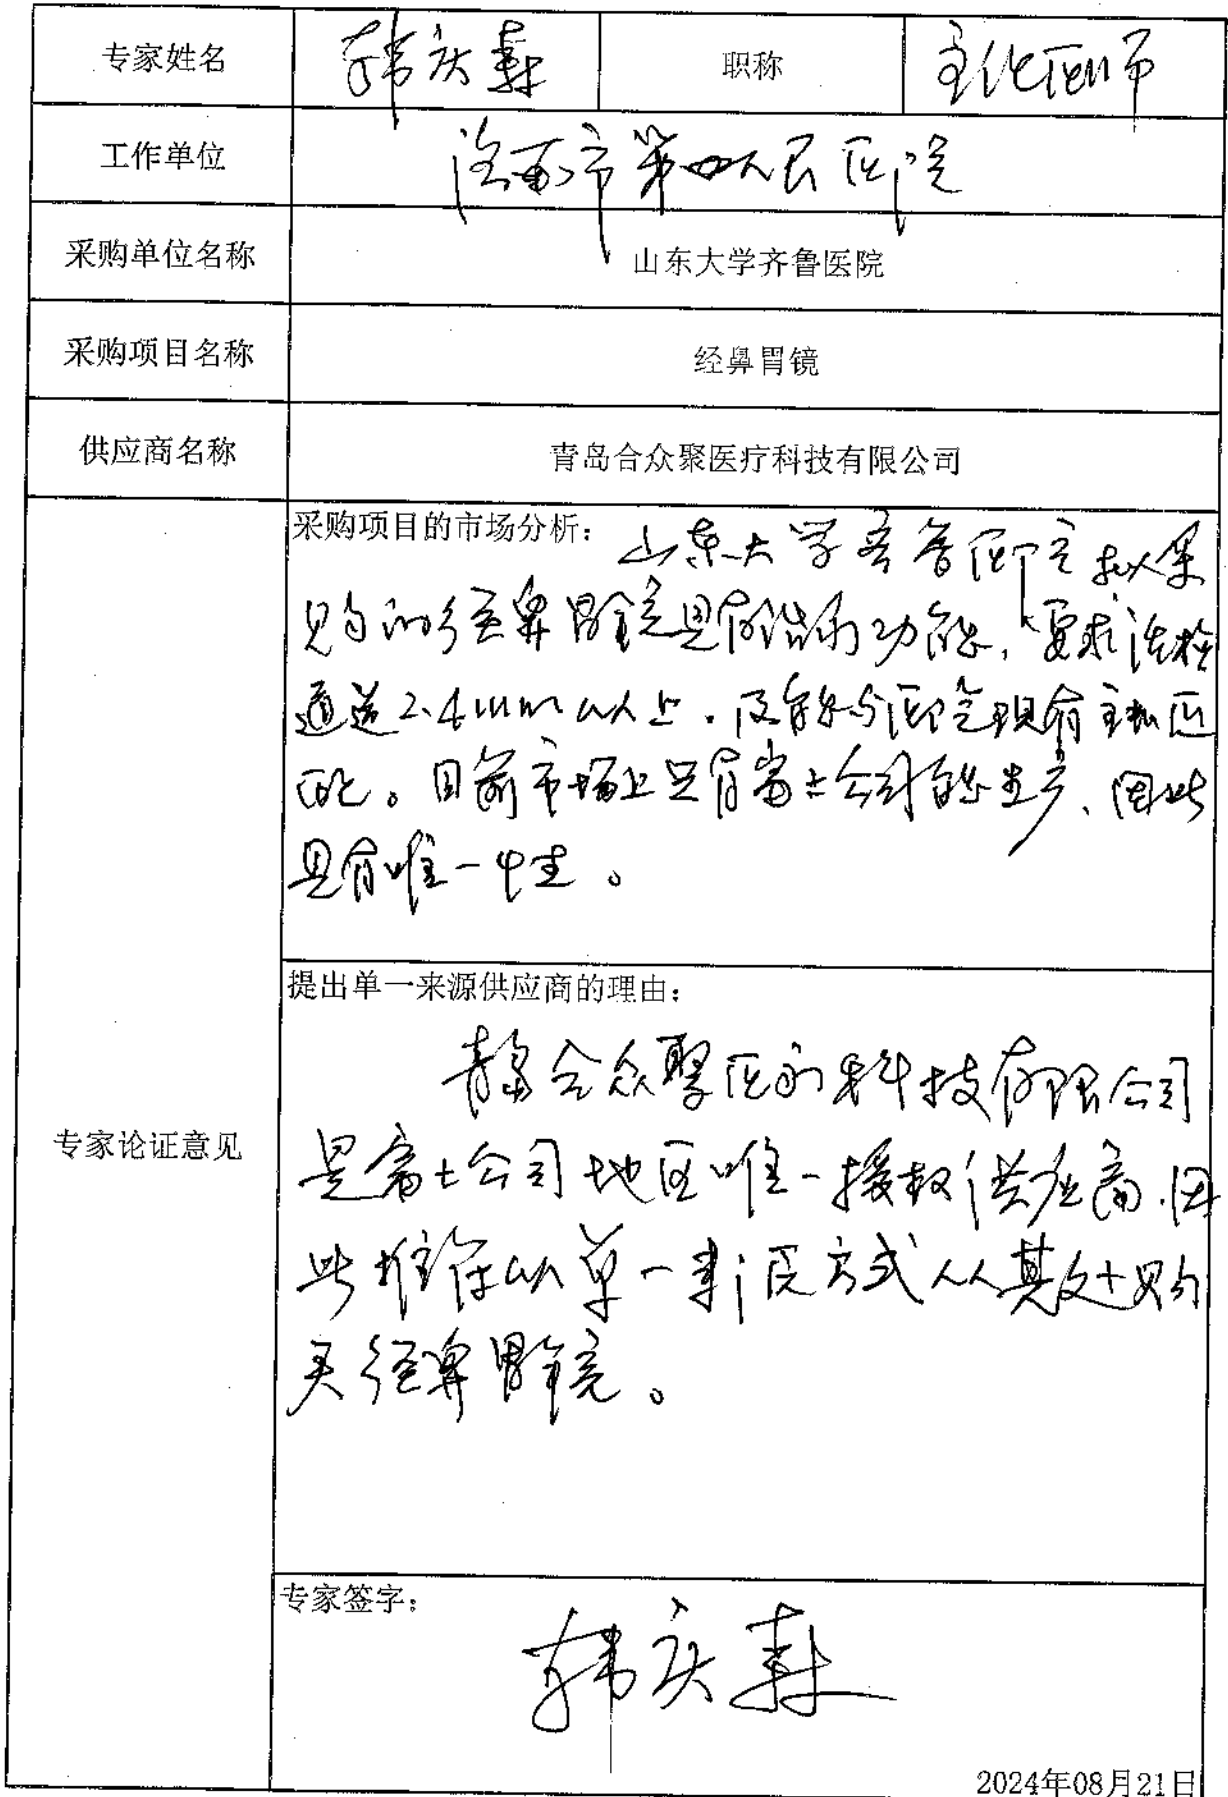 专家姓名 韩庆森 职称 主任医师
工作单位 济南市第四人民医院
采购单位名称 山东大学齐鲁医院
采购项目名称 经鼻胃镜
供应商名称 青岛合众聚医疗科技有限公司
专家论证意见
采购项目的市场分析: 山东大学齐鲁医院拟采
购的经鼻胃镜具有治疗功能,要求活检
通道2.4mm以上,及能与医院现有主机匹
配。目前市场上只有富士公司能生产、因此
具有唯一性。
提出单一来源供应商的理由:
青岛合众聚医疗科技有限公司
是富士公司地区唯一授权供应商,因
此推荐以单一来源方式从其处购
买经鼻胃镜。
专家签字: 韩庆森
2024年08月21日